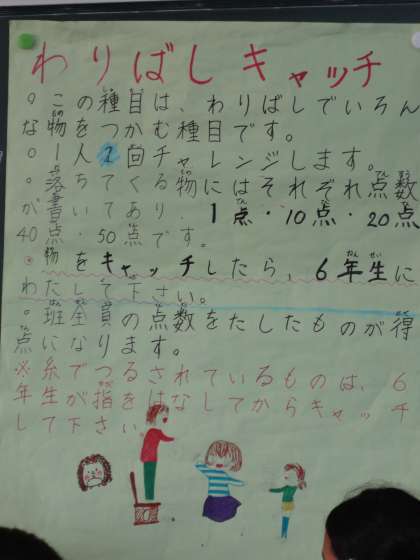 わりばしキャッチ
。この種目は、わりばしでいろん
な物をつかむ種目です。
。一人2回チャレンジします。
。落ちてくる物にはそれぞれ点数
が書いてあり、1点・10点・20点
40点・50点です。
。物をキャッチしたら、6年生に
わたして下さい。
。班全員の点数をたしたものが得
点になります。
※糸でつるされているものは、6
年生が指をはなしてからキャッチ
して下さい